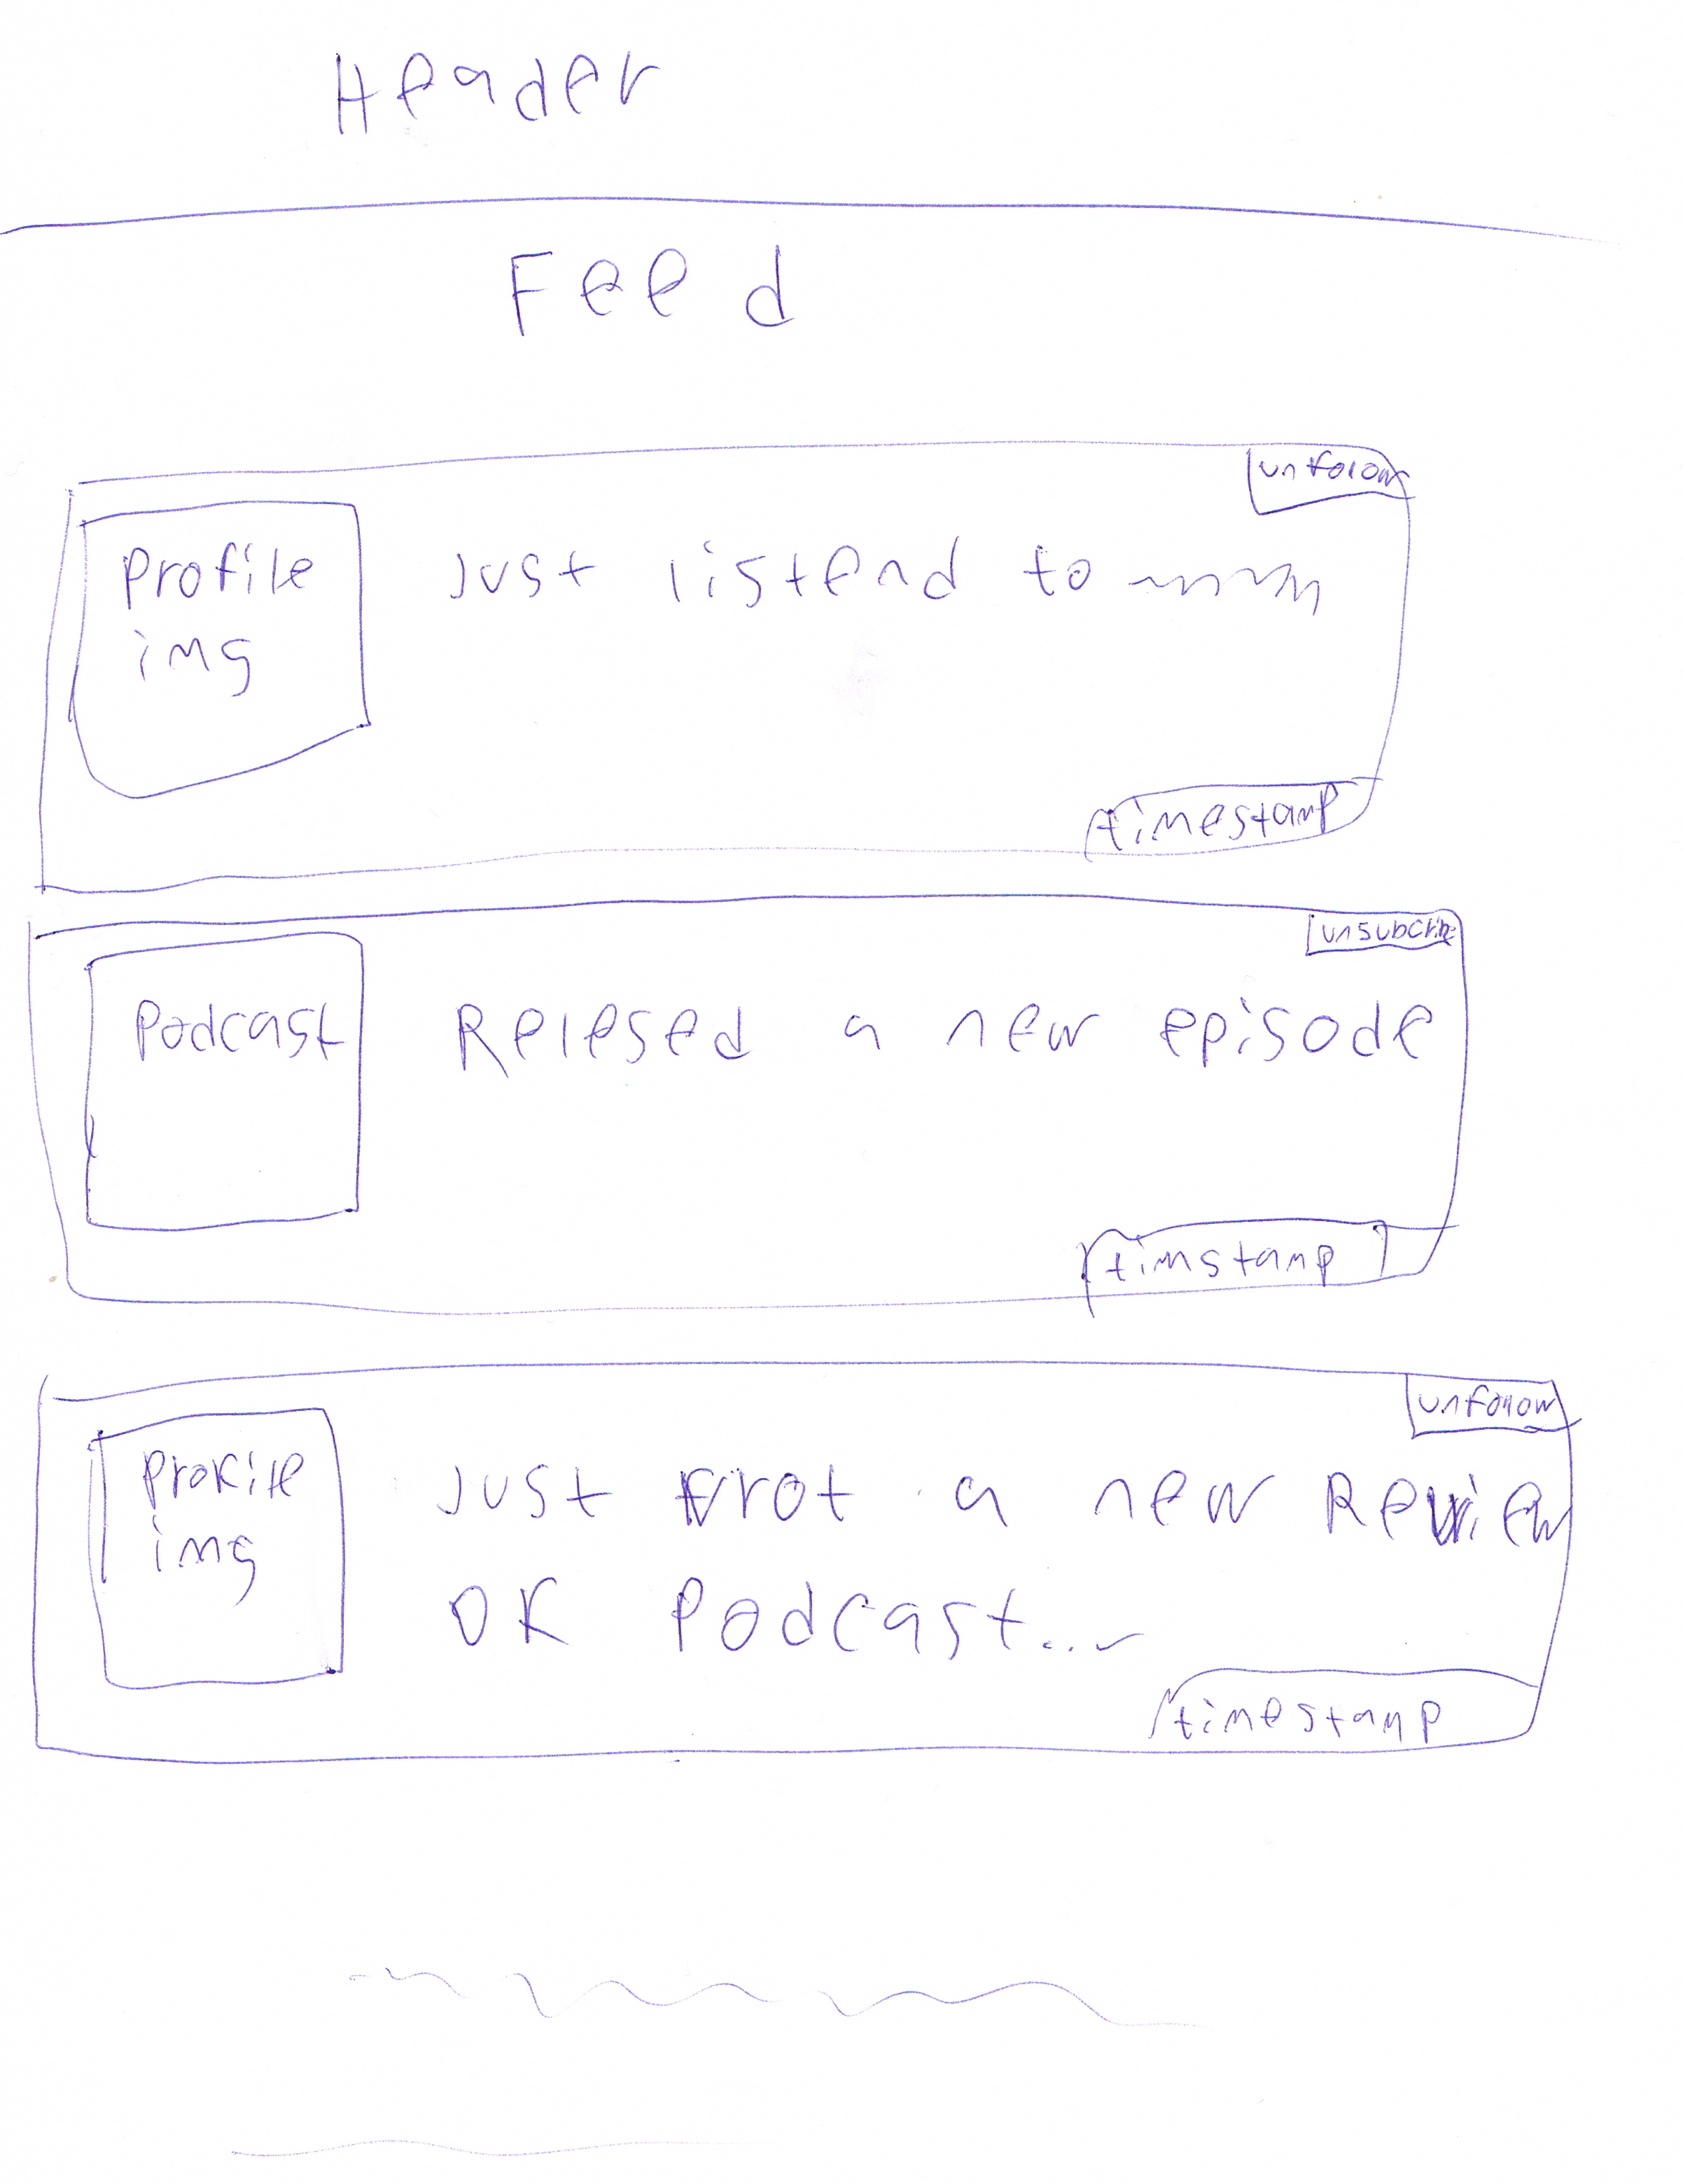 Header
Feed
unfolow
Profile
img
Just listend to
timestamp
unsubcribe
Podcast
Relesed a new episode
timstamp
unfollow
Profile
img
Just wrot a new Review
OF Podcast...
timestamp